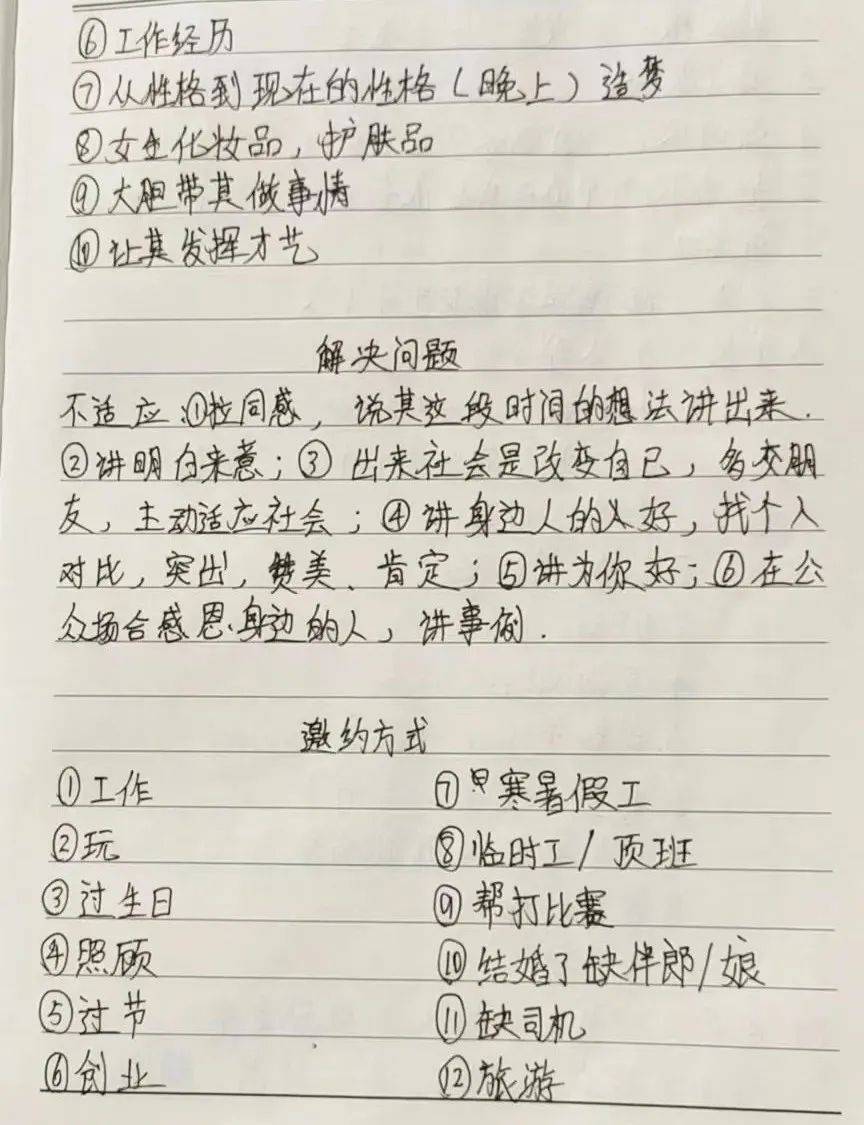 ⑥工作经历
⑦从性格到现在的性格（晚上）造梦
⑧女生化妆品，护肤品
⑨大胆带其做事情
⑩让其发挥才艺
解决问题
不适应：①拉同感，说其这段时间的想法讲出来.
②讲明白来意；③出来社会是改变自己，多交朋
友，主动适应社会；④讲身边人的好，找个人
对比，突出，赞美、肯定；⑤讲为你好；⑥在公
众场合感恩身边的人，讲事例.
邀约方式
①工作
②玩
③过生日
④照顾
⑤过节
⑥创业
⑦寒暑假工
⑧临时工/顶班
⑨帮打比赛
⑩结婚了缺伴郎/娘
⑪缺司机
⑫旅游